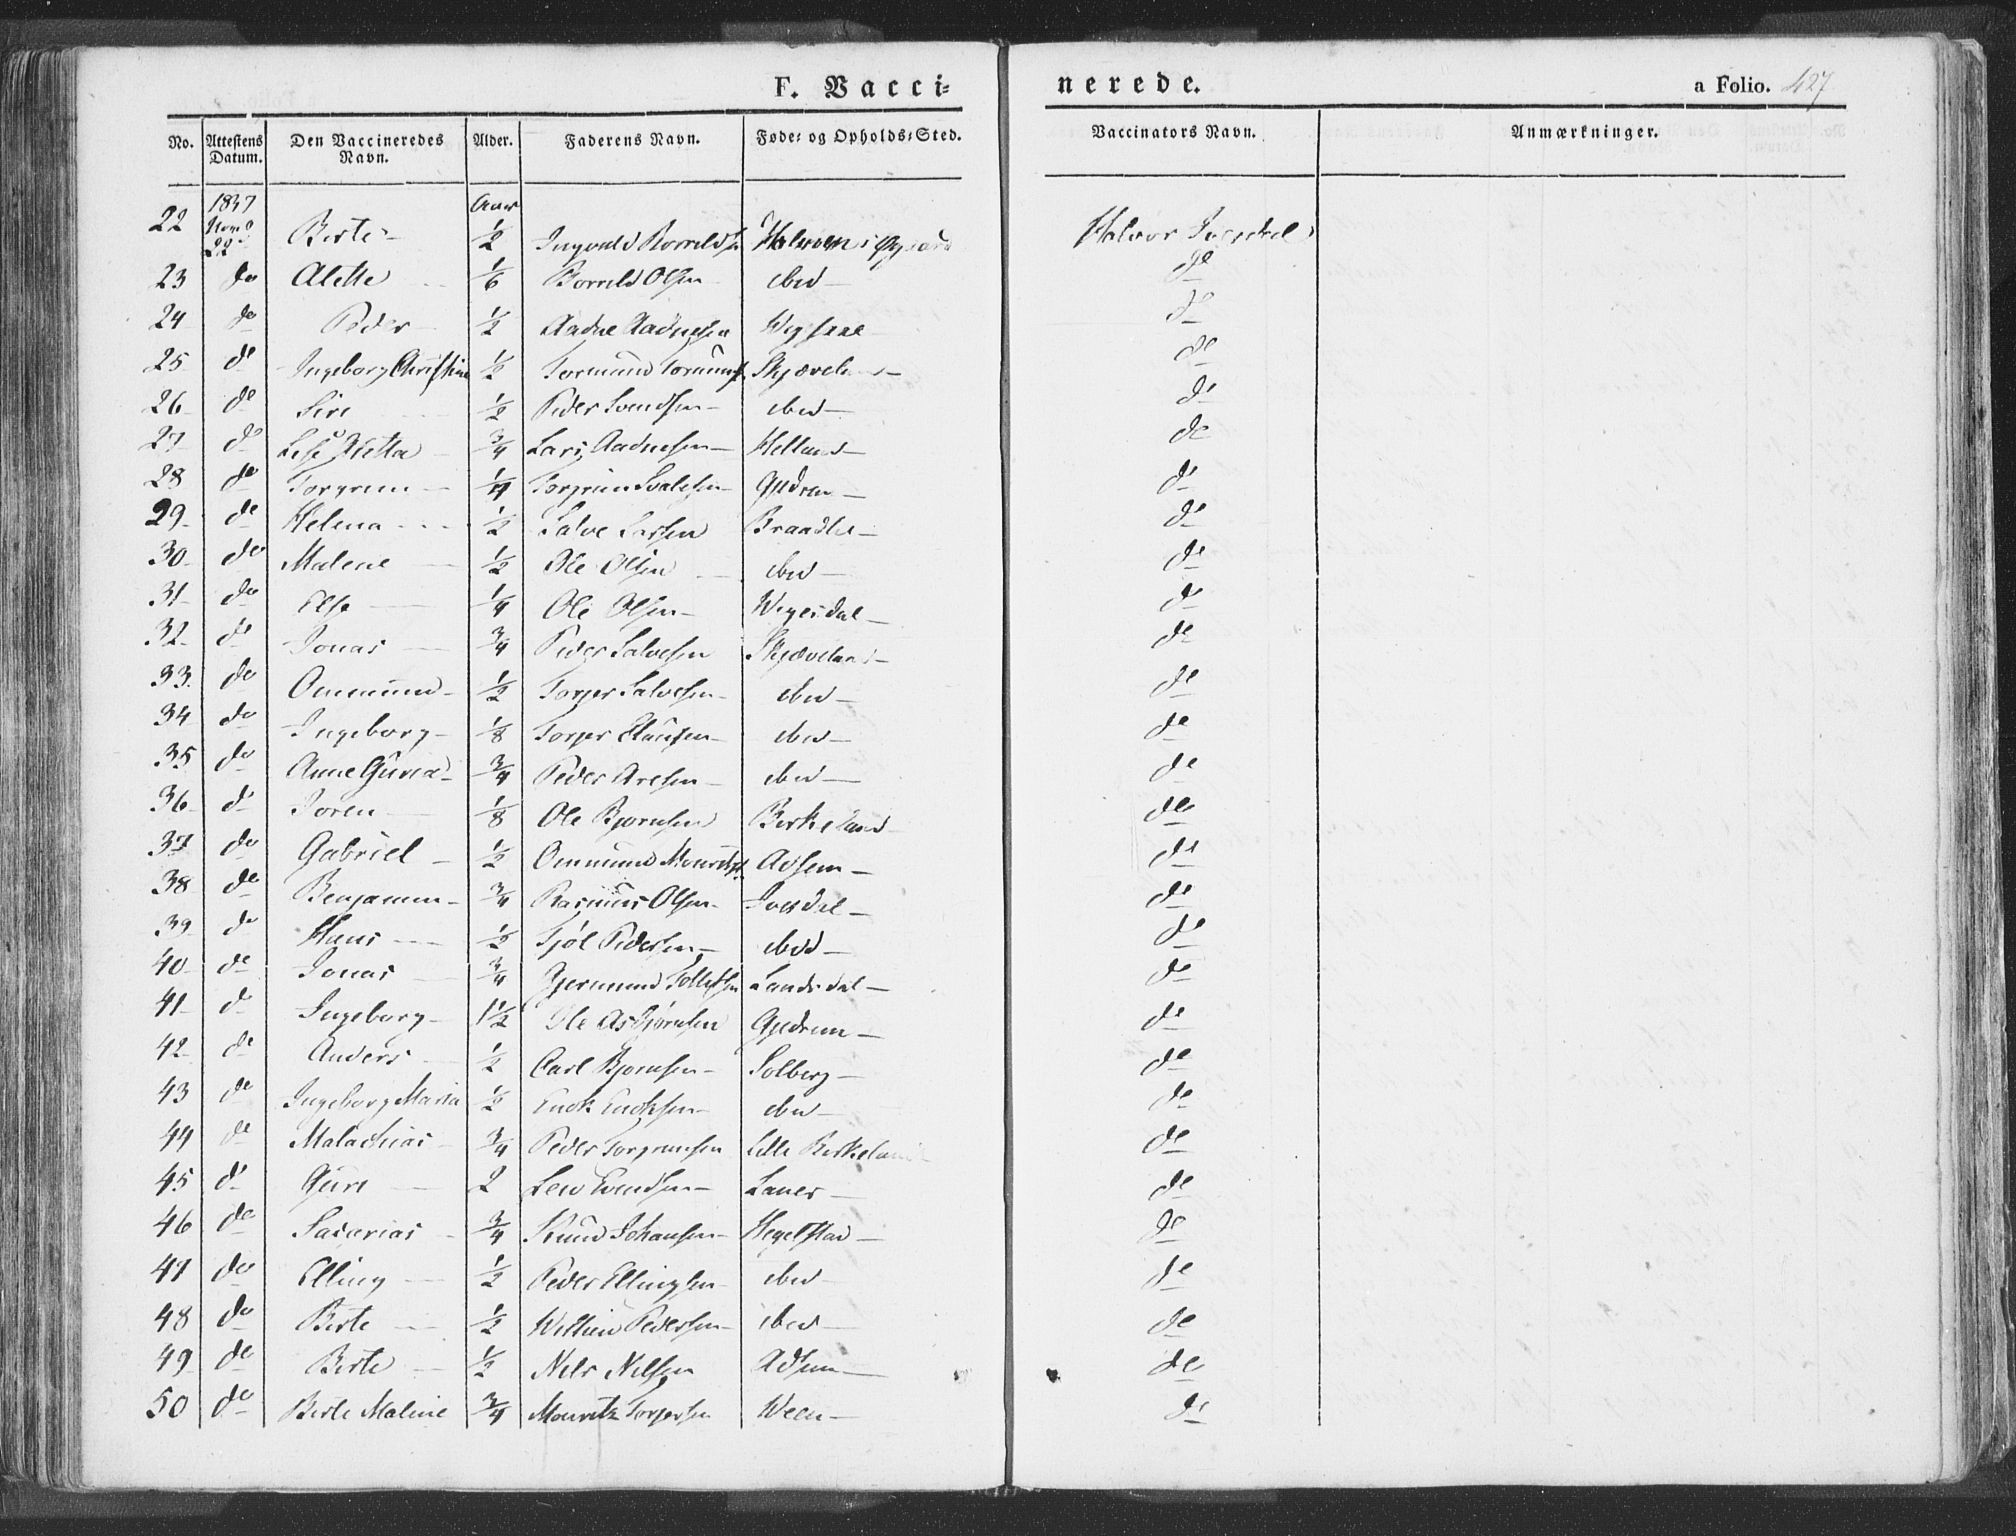 F. Vacci=
nerede.
a Folio. 427
No. Attestens Datum. Den Vaccineredes Navn. Alder. Faderens Navn. Føde= og Opholds=Sted. Vaccinators Navn. Anmærkninger.
1837 Aar
22 22 Birte 1/2 Ingvald Halvor
23 do Alette 1/6 Borrild Olsen ibid do
24 do Peder 1/2 Aadne Aadnesen do
25 do Ingeborg Christine 1/2 Tormund Skjæveland do
26 do Siri 1/2 Peder Svendsen ibid do
27 do Lise Metta 3/4 Lars Aadnesen Helland do
28 do Torgrim 1/4 Torgrim Salvesen Gydrem do
29 do Helena 1/2 Salve Larsen do
30 do Malene 1/2 Ole Olsen ibid do
31 do Else 1/4 Ole Olsen do
32 do Jonas 3/4 Peder Salvesen Skjæveland do
33 do Ommund 1/2 Torger Salvesen ibid do
34 do Ingeborg 1/8 Torger Clausen ibid do
35 do Anne Guria 3/4 Peder Aresen ibid do
36 do Joren 1/8 Ole Bjørnsen Birkeland do
37 do Gabriel 1/2 Ommund Mouritss. Adsem do
38 do Benjamin 3/4 Rasmus Olsen Ivesdal do
39 do Hans 1/2 Sjøl Pedersen ibid do
40 do Jonas 3/4 Gjermund Tollefsen Landsdal do
41 do Ingeborg 1 1/2 Ole Asbjørnsen Gydrem do
42 do Anders 1/2 Carl Bjørnsen Solberg do
43 do Ingeborg Maria 1/2 Enok Enoksen ibid do
44 do Malachias 3/4 Peder Torgrimsen Lille Birkeland do
45 do Guri 2 Lew Evendsen Laner do
46 do Sacarias 3/4 Knud Johansen Hegelstad do
47 do Elling 1/2 Peder Ellingsen ibid do
48 do Birte 1/2 Willum Pedersen ibid do
49 do Birte 1/2 Nels Nelsen Adsem do
50 do Birte Maline 3/4 Mouritz Torgersen Veen do